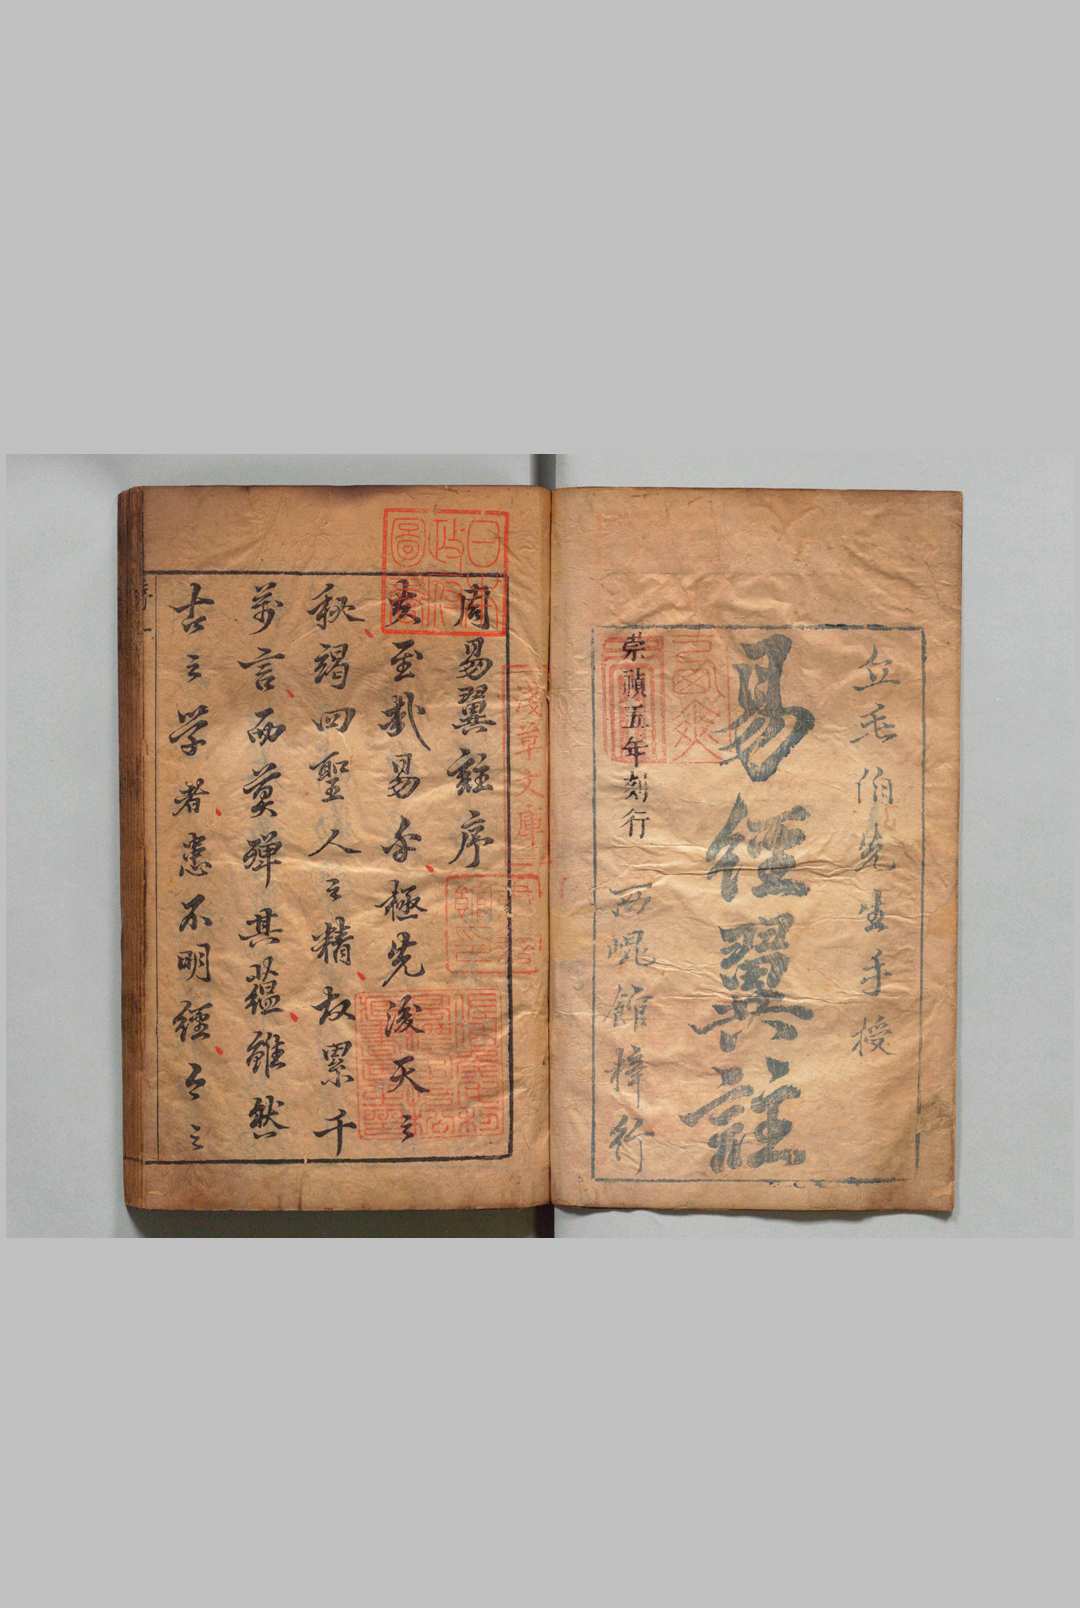 丘毛伯先生手授
易經翼註
崇禎五年刻行 西崐館梓行
周易翼註序
大至哉易乎極先後天之
秘竭四聖人之精故累千
萬言而莫殫其蘊雖然
古之学者患不明經今之
淺草文庫